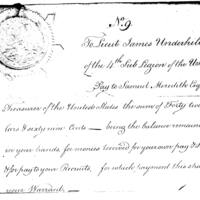 No. 9.
To Lieut James Underhill
of the 4th Sub Legion of the Un
Pay to Samuel Meredith Esq
Treasurer of the United States the sum of Forty two
lars & sixty nine Cents — being the balance remain
in your hands for monies received for your own pay &
& for pay to your Recruits, for which payment this sha
your Warrant